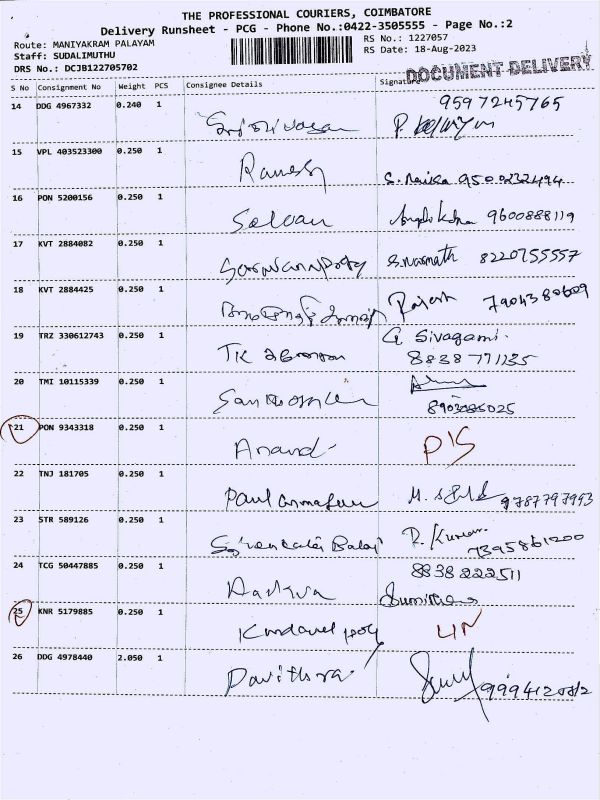 THE PROFESSIONAL COURIERS, COIMBATORE
Delivery Runsheet - PCG - Phone No.:0422-3505555 - Page No.:2
Route: MANIYAKRAM PALAYAM
RS No.: 1227057
Staff: SUDALIMUTHU
RS Date: 18-Aug-2023
DRS No.: DCJB122705702
DOCUMENT DELIVERY
S No Consignment No Weight PCS Consignee Details Signature
9597245765
14 DDG 4967332 0.240 1
15 VPL 403523300 0.250 1
Ramesh 9500232494
16 PON 5200156 0.250 1
Selvan 9600888119
17 KVT 2884082 0.250 1
8220755557
18 KVT 2884425 0.250 1
Rajesh 7904380609
19 TRZ 330612743 0.250 1 G Sivagami
TK 8838771135
20 TMI 10115339 0.250 1
21 PON 9343318 0.250 1
Anand P/S
22 TNJ 181705 0.250 1
9787797993
23 STR 589126 0.250 1
Balaji R. Kumar
7395861200
24 TCG 50447885 0.250 1 8838222511
25 KNR 5179885 0.250 1
26 DDG 4978440 2.050 1
Pavithra 9994120812